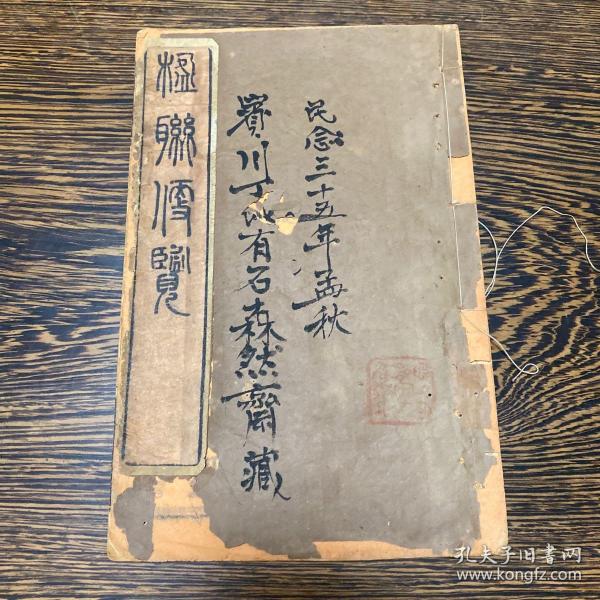 民念三十五年孟秋
賓川丁有石森然齋藏
楹聯便覽
孔夫子旧书网
www.kongfz.com